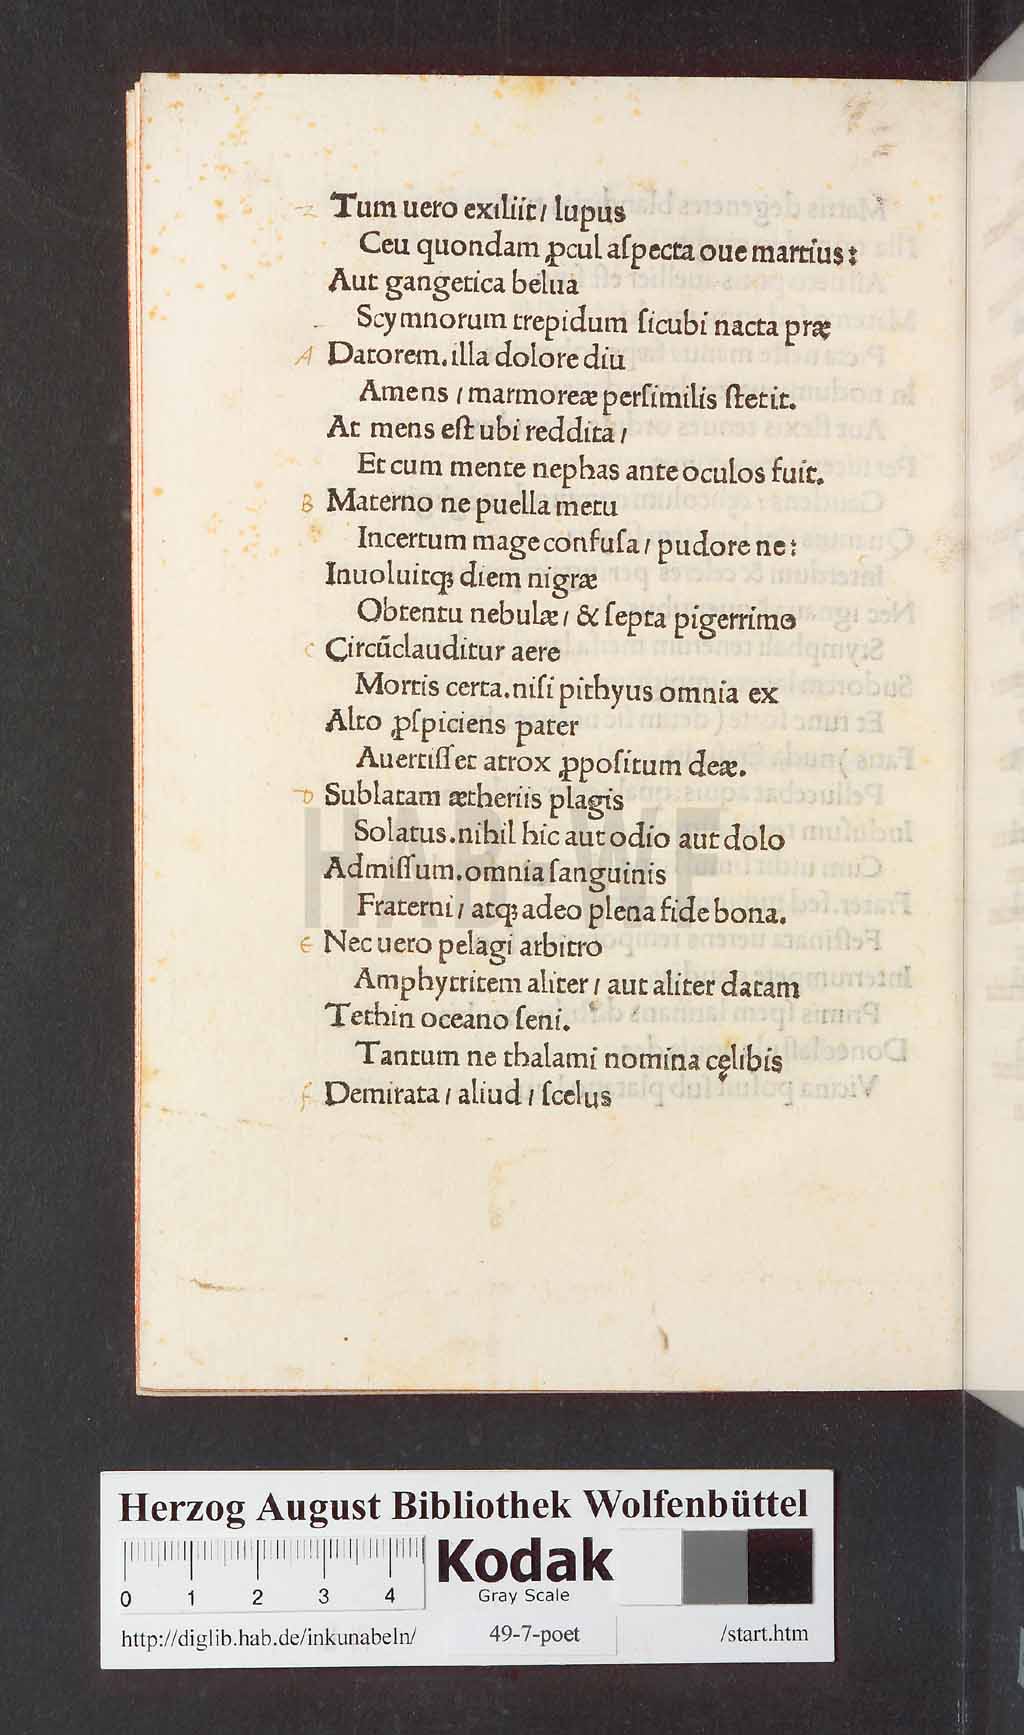 z Tum uero exiliit / lupus
Ceu quondam ꝓcul aſpecta oue martius:
Aut gangetica belua
Scymnorum trepidum ſicubi nacta præ
A Datorem. illa dolore diu
Amens / marmoreæ perſimilis ſtetit.
At mens eſt ubi reddita /
Et cum mente nephas ante oculos fuit.
B Materno ne puella metu
Incertum mage confuſa / pudore ne:
Inuoluitqꝫ diem nigræ
Obtentu nebulæ / & ſepta pigerrimo
C Circũclauditur aere
Mortis certa. niſi pithyus omnia ex
Alto ꝓſpiciens pater
Auertiſſet atrox ꝓpoſitum deæ.
D Sublatam ætheriis plagis
Solatus. nihil hic aut odio aut dolo
Admiſſum. omnia ſanguinis
Fraterni / atqꝫ adeo plena fide bona.
E Nec uero pelagi arbitro
Amphyttritem aliter / aut aliter datam
Tethin oceano ſeni.
Tantum ne thalami nomina cęlibis
f Demirata / aliud / ſcelus
HAB-WF
Herzog August Bibliothek Wolfenbüttel
0 1 2 3 4
Kodak
Gray Scale
http://diglib.hab.de/inkunabeln/ 49-7-poet /start.htm